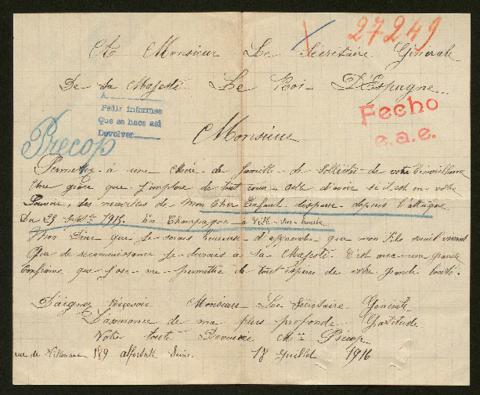 27249
A Monsieur Le Secrétaire Générale
De sa Majesté Le Roi D'Espagne
A
Pedir informes
Que se hace así
Devolver
Fecho
e.a.e.
Precop
Monsieur
Permettez à une Mère de famille de solliciter de votre bienveillance
Une grâce que j'implore de tout
Pouvoir, des nouvelles de Mon Cher Enfant disparu depuis l'attaque
Du 25 1915 En Champagne à Ville-sur-Tourbe
Mon Dieu que je serais heureuse d'apprendre que mon Fils serait vivant
Que de reconnaissance je devrais à sa Majesté C'est avec une grande
Confiance que j'ose me permettre de tout espérer de votre grande bonté.
Daignez recevoir Monsieur Le Secrétaire Générale
L'assurance de ma plus profonde Gratitude
Votre toute Dévouée Precop
rue de Villeneuve 149 alfortville Seine. 18 Juillet 1916